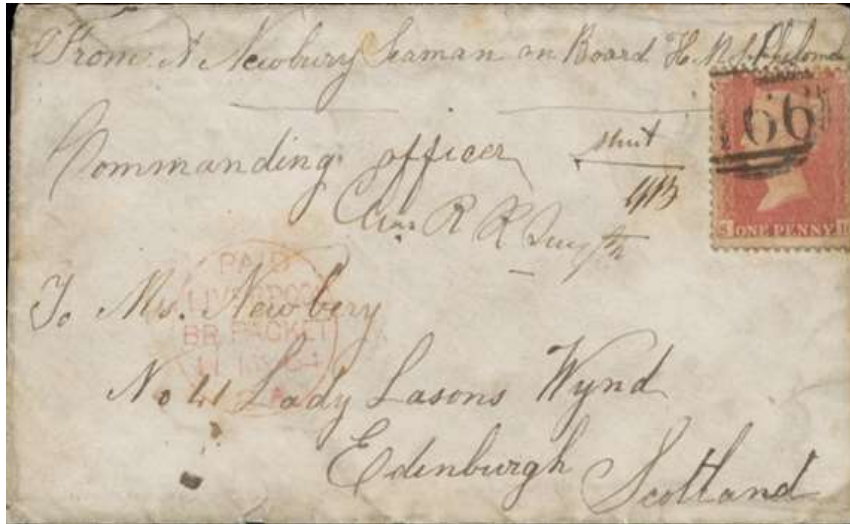 From N Newbury Seaman on Board H.M.S. Philomel
66
Commanding officer
Chas R R Smyth
S ONE PENNY H
PAID
LIVERPOOL
BR. PACKET
To Mrs. Newbery
No 41 Lady Lasons Wynd
Edinburgh Scotland